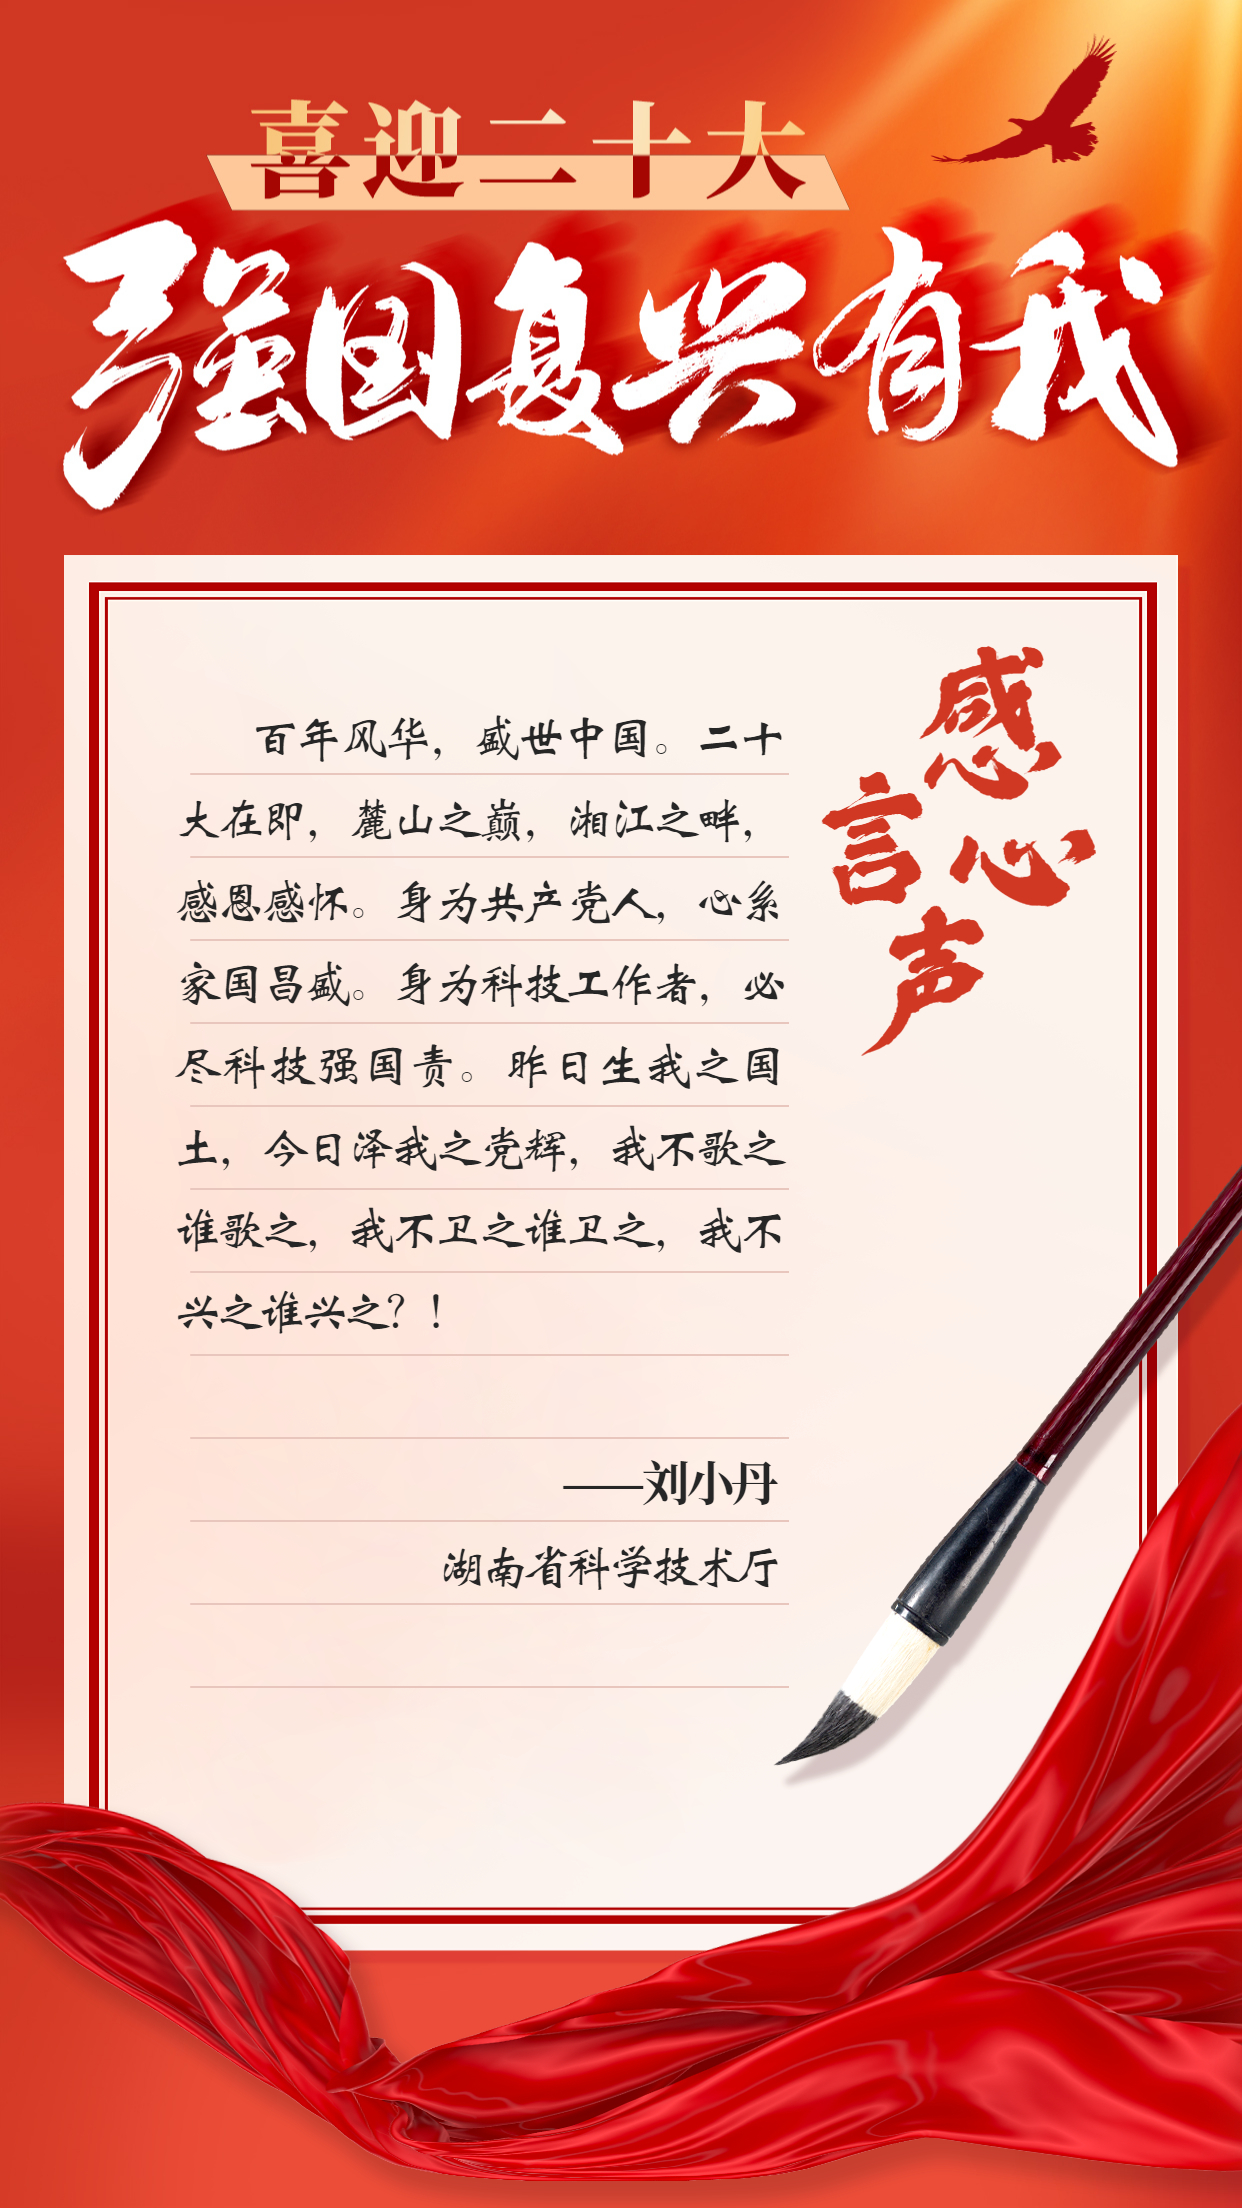 喜迎二十大
强国复兴有我
感言心声
百年风华，盛世中国。二十
大在即，麓山之巅，湘江之畔，
感恩感怀。身为共产党人，心系
家国昌盛。身为科技工作者，必
尽科技强国责。昨日生我之国
土，今日泽我之党辉，我不歌之
谁歌之，我不卫之谁卫之，我不
兴之谁兴之？！
——刘小丹
湖南省科学技术厅